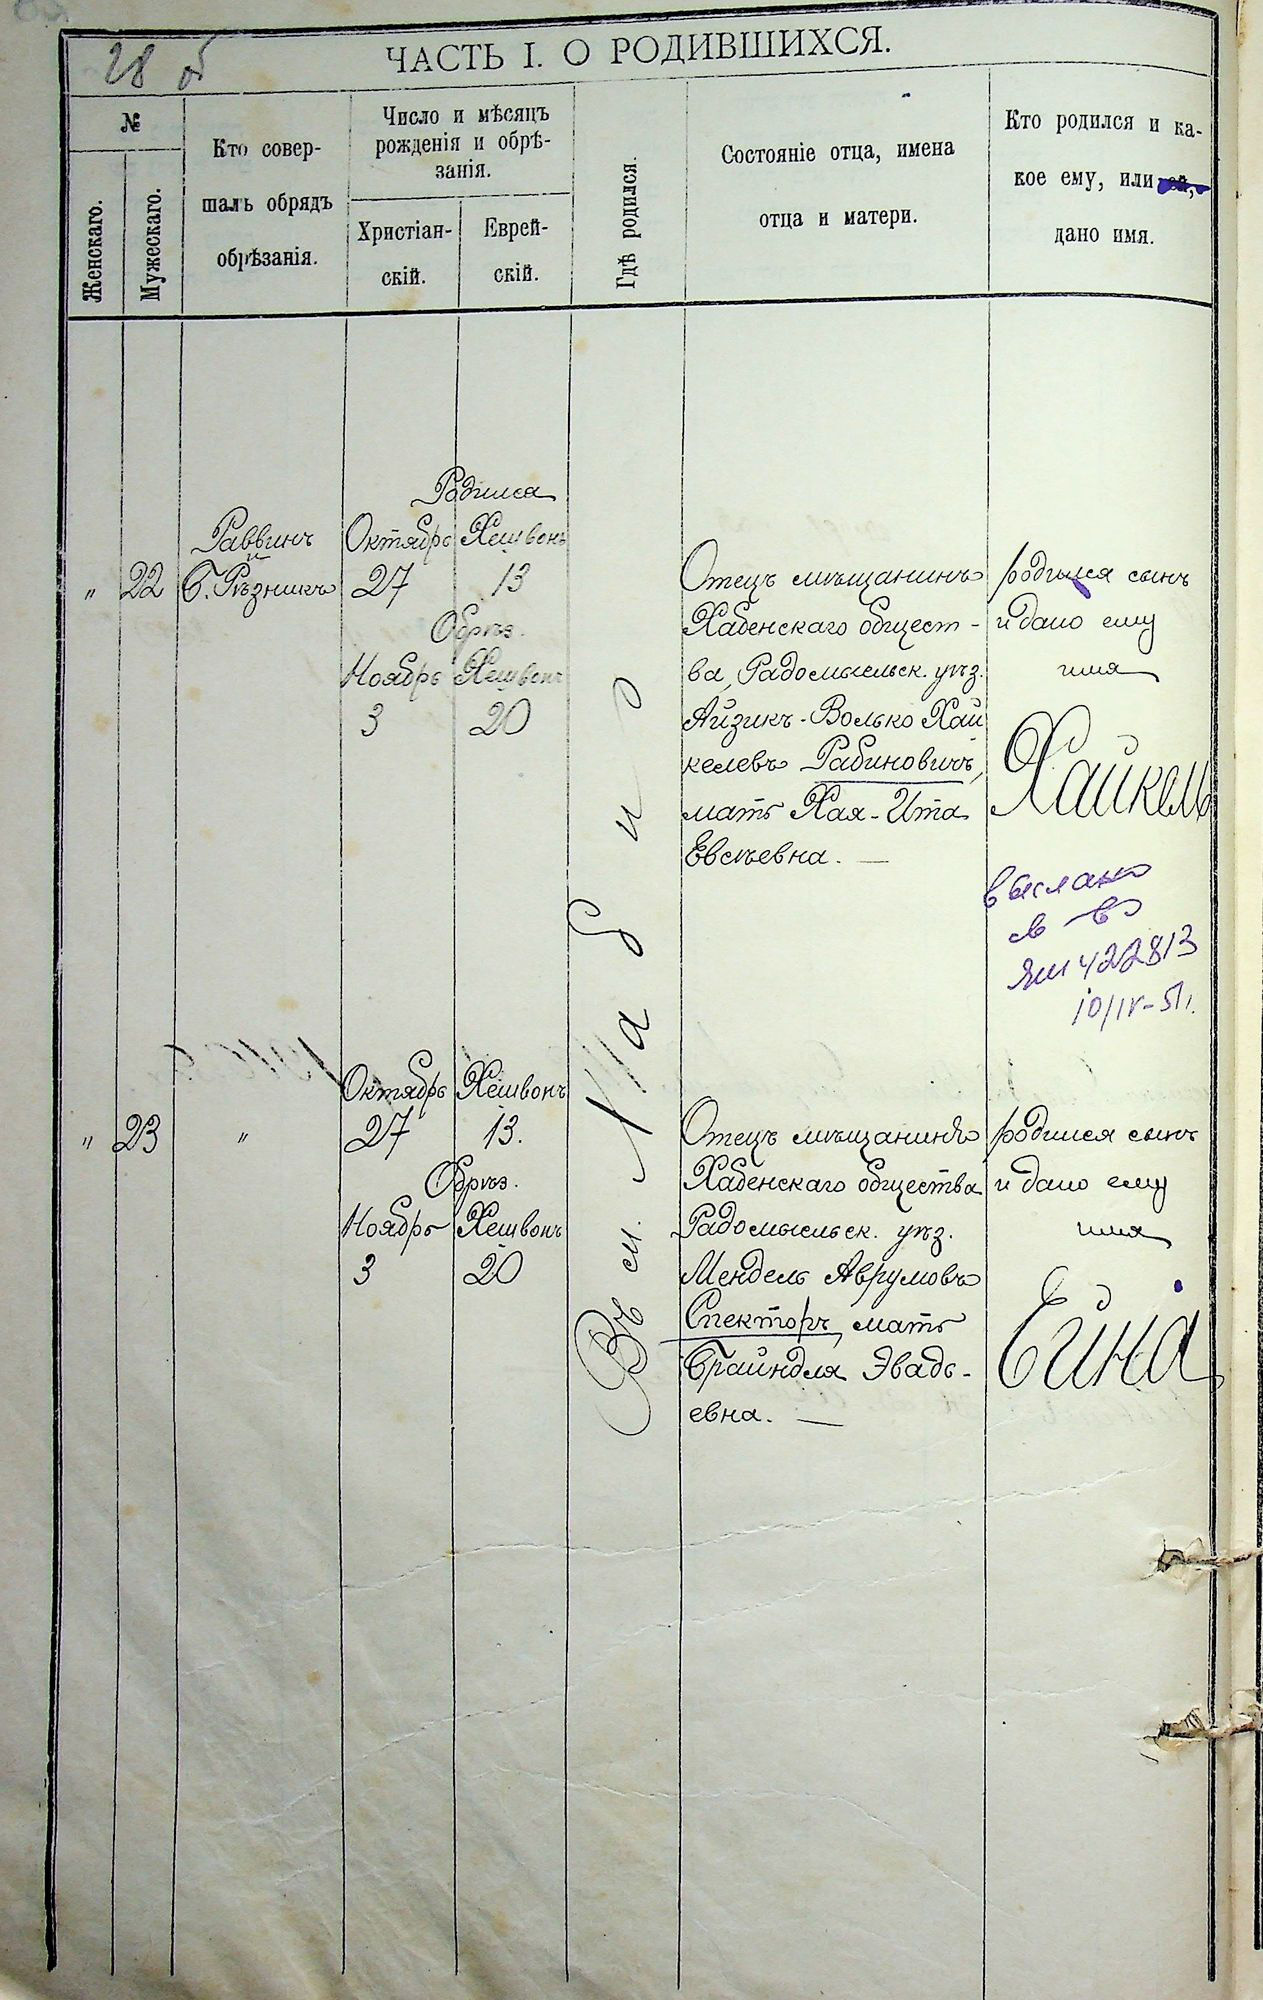 28 об
ЧАСТЬ I. О РОДИВШИХСЯ.
№
Женскаго.
Мужескаго.
Кто совер-
шалъ обрядъ
обрѣзанія.
Число и мѣсяцъ
рожденія и обрѣ-
занія.
Христіан-
скій.
Еврей-
скій.
Гдѣ родился.
Состояніе отца, имена
отца и матери.
Кто родился и ка-
кое ему, или ей,
дано имя.
Родился
" 22
Раввинъ
и
Б. Рѣзникъ
Октябрь Хешвонъ
27 13
Обрѣз.
Ноябрь Хешвонъ
3 20
Въ м.
Отецъ мѣщанинъ
Хабенскаго общест-
ва, Радомысльск. уѣз.
Айзикъ-Волько Хай
келевъ Рабиновичъ,
мать Хая-Ита
Евсѣевна. —
родился сынъ
и дано ему
имя
Хайкель
выслано
ЯШ 422813
10/IV-51 г.
" 23
"
Октябрь Хешвонъ
27 13.
Обрѣз.
Ноябрь Хешвонъ
3 20
Отецъ мѣщанинъ
Хабенскаго общества
Радомысльск. уѣз.
Мендель Аврумовъ
Спекторъ, мать
Брайндля Эвадь-
евна. —
родился сынъ
и дано ему
имя
Ейна